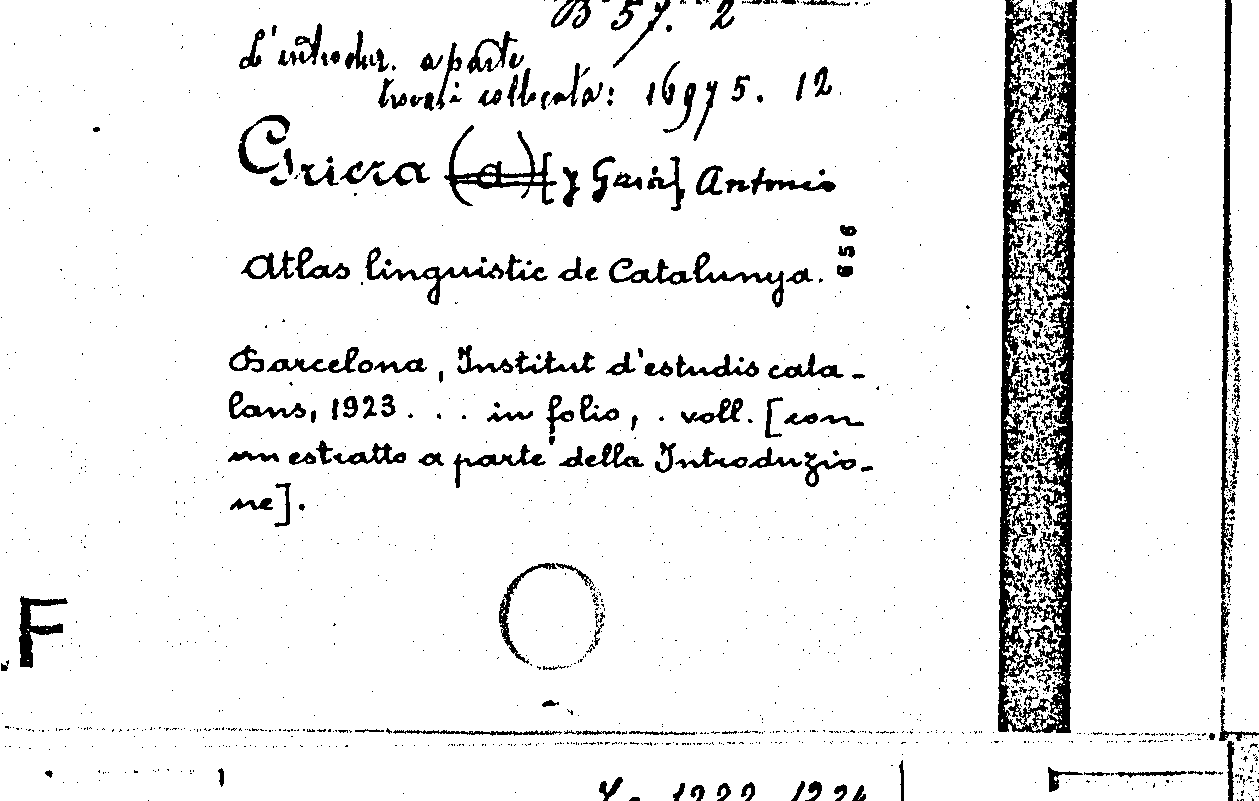 B 57. 2
L'introduz. a parte
trovasi collocata: 16975. 12
Griera (a) [y Gaià], Antonio
Atlas linguistic de Catalunya.
656
Barcelona, Institut d'estudis cata-
lans, 1923 . . . in folio, . voll. [con
un estratto a parte della Introduzio-
ne].
F